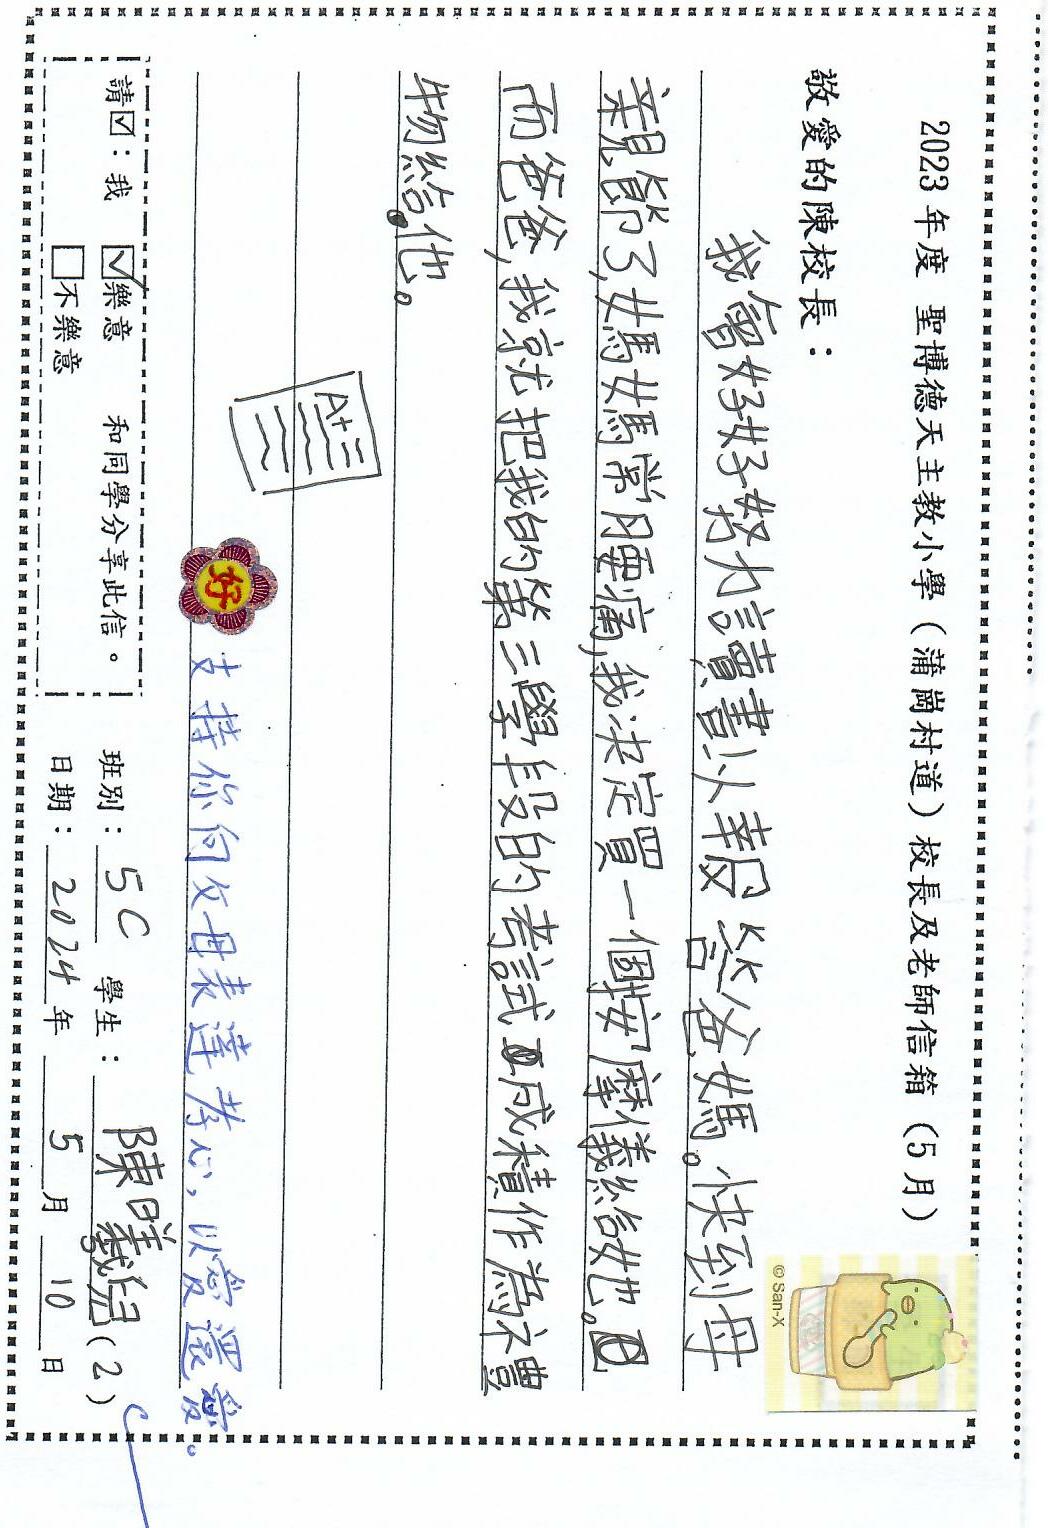 2023 年度 聖博德天主教小學（蒲崗村道）校長及老師信箱（5月）
© San-X
敬愛的陳校長：
我會好好努力讀書以報答爸媽。快到母
親節了,媽媽常腰痛,我決定買一個按摩儀給她。
而爸爸,我就把我的第三學段的考試成績作為禮
物給他。
A+
好
支持你向父母表達孝心，以愛還愛。
請☑：我 ☑樂意 和同學分享此信。
□不樂意
班別：5C 學生：陳曦兒(2)
日期：2024年5月10日